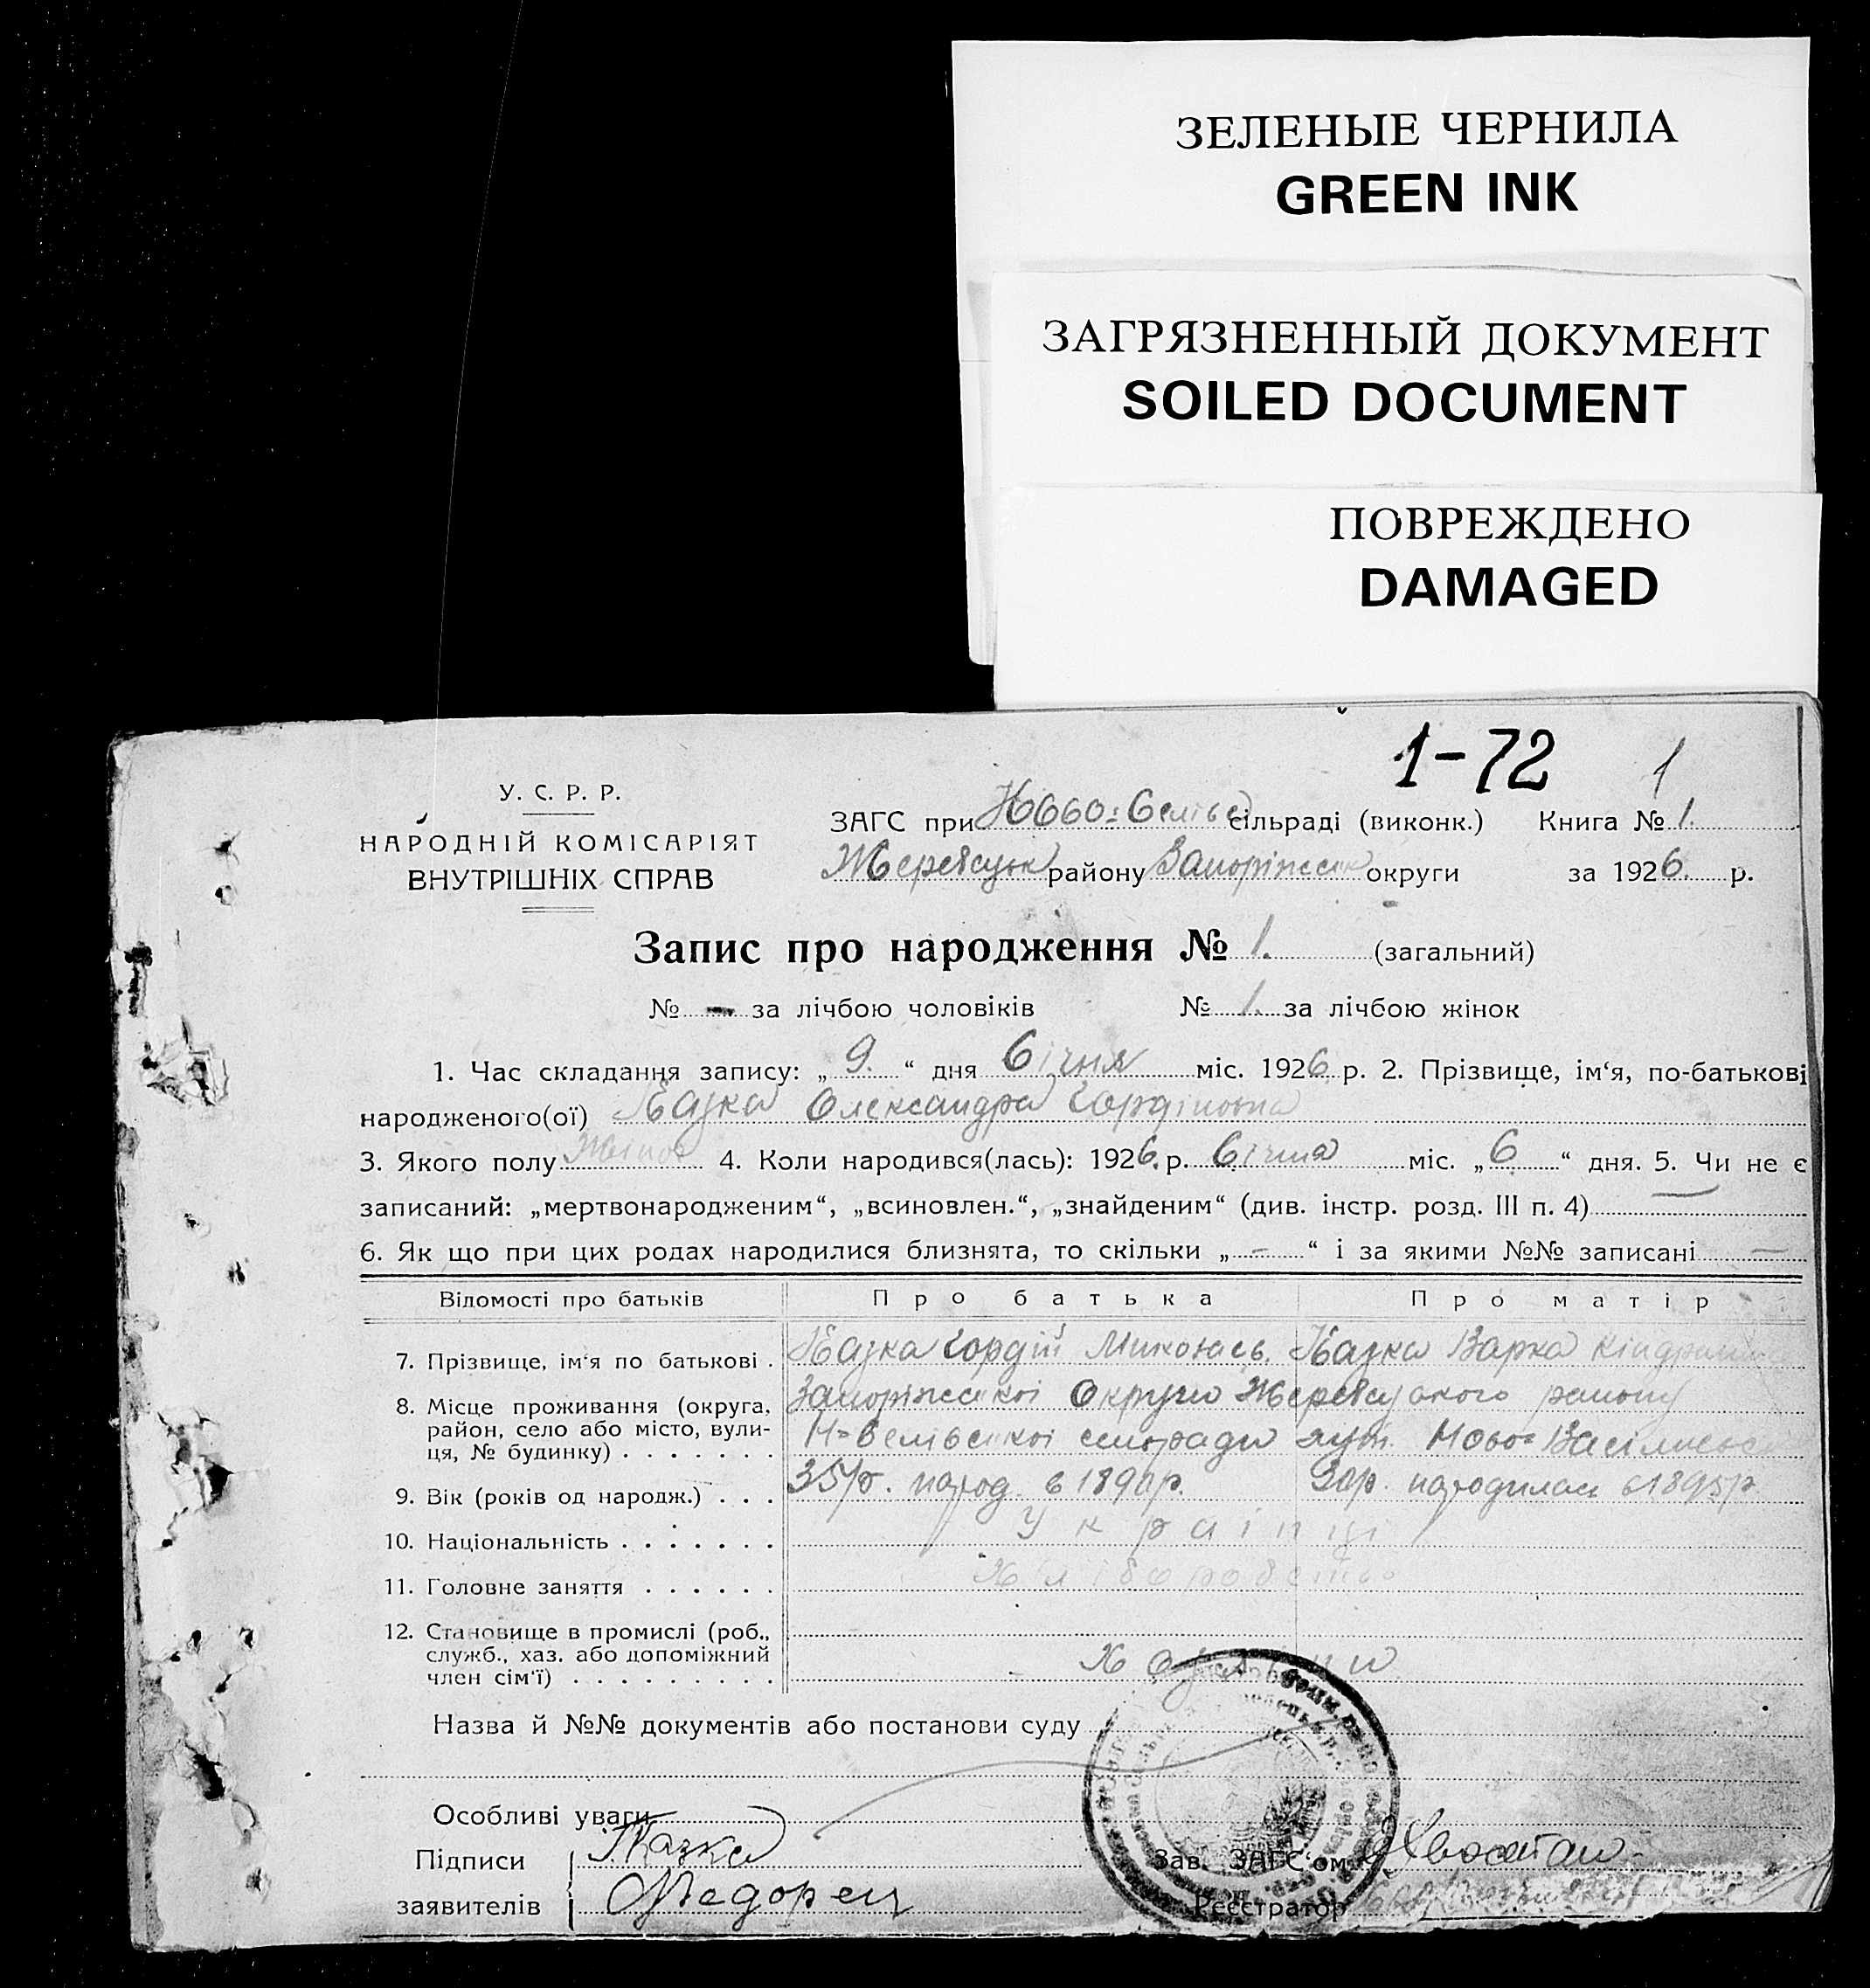 ЗЕЛЕНЫЕ ЧЕРНИЛА
GREEN INK
ЗАГРЯЗНЕННЫЙ ДОКУМЕНТ
SOILED DOCUMENT
ПОВРЕЖДЕНО
DAMAGED
1-72 1
У. С. Р. Р.
НАРОДНІЙ КОМІСАРІЯТ
ВНУТРІШНІХ СПРАВ
ЗАГС при сільраді (виконк.) Книга № 1.
Жеребецьк району Запоріжськ округи за 1926. р.
Запис про народження № 1. (загальний)
№ — за лічбою чоловіків № 1. за лічбою жінок
1. Час складання запису: „ 9. “ дня Січня міс. 1926 р. 2. Прізвище, ім‘я, по-батькові
народженого(ої) Казка Олександра Гордіївна
3. Якого полу 4. Коли народився(лась): 1926. р. Січня міс. „ 6 “ дня. 5. Чи не є
записаний: „мертвонародженим“, „всиновлен.“, „знайденим“ (див. інстр. розд. III п. 4) —
6. Як що при цих родах народилися близнята, то скільки „ – “ і за якими №№ записані —
Відомості про батьків Про батька Про матір
7. Прізвище, ім‘я по батькові . Казка Гордій Миколаєв. Казка Варка
8. Місце проживання (округа, район, село або місто, вули-ця, № будинку) . . . . . . . Запоріжської Округи Жеребецького району
сільради Ново-
9. Вік (років од народж.) . . . 35 р. народ. в 1890 р. 30 р. народилась в 1895 р.
10. Національність . . . . . . . Українці
11. Головне заняття . . . . . . Хліборобство
12. Становище в промислі (роб., служб., хаз. або допоміжний член сім‘ї) . . . . . . . . .
Назва й №№ документів або постанови суду
Особливі уваги
Підписи Казка Зав. ЗАГС‘ом
заявителів Реєстратор